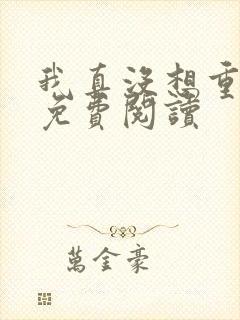 我真没想重
免費閱讀
萬金豪